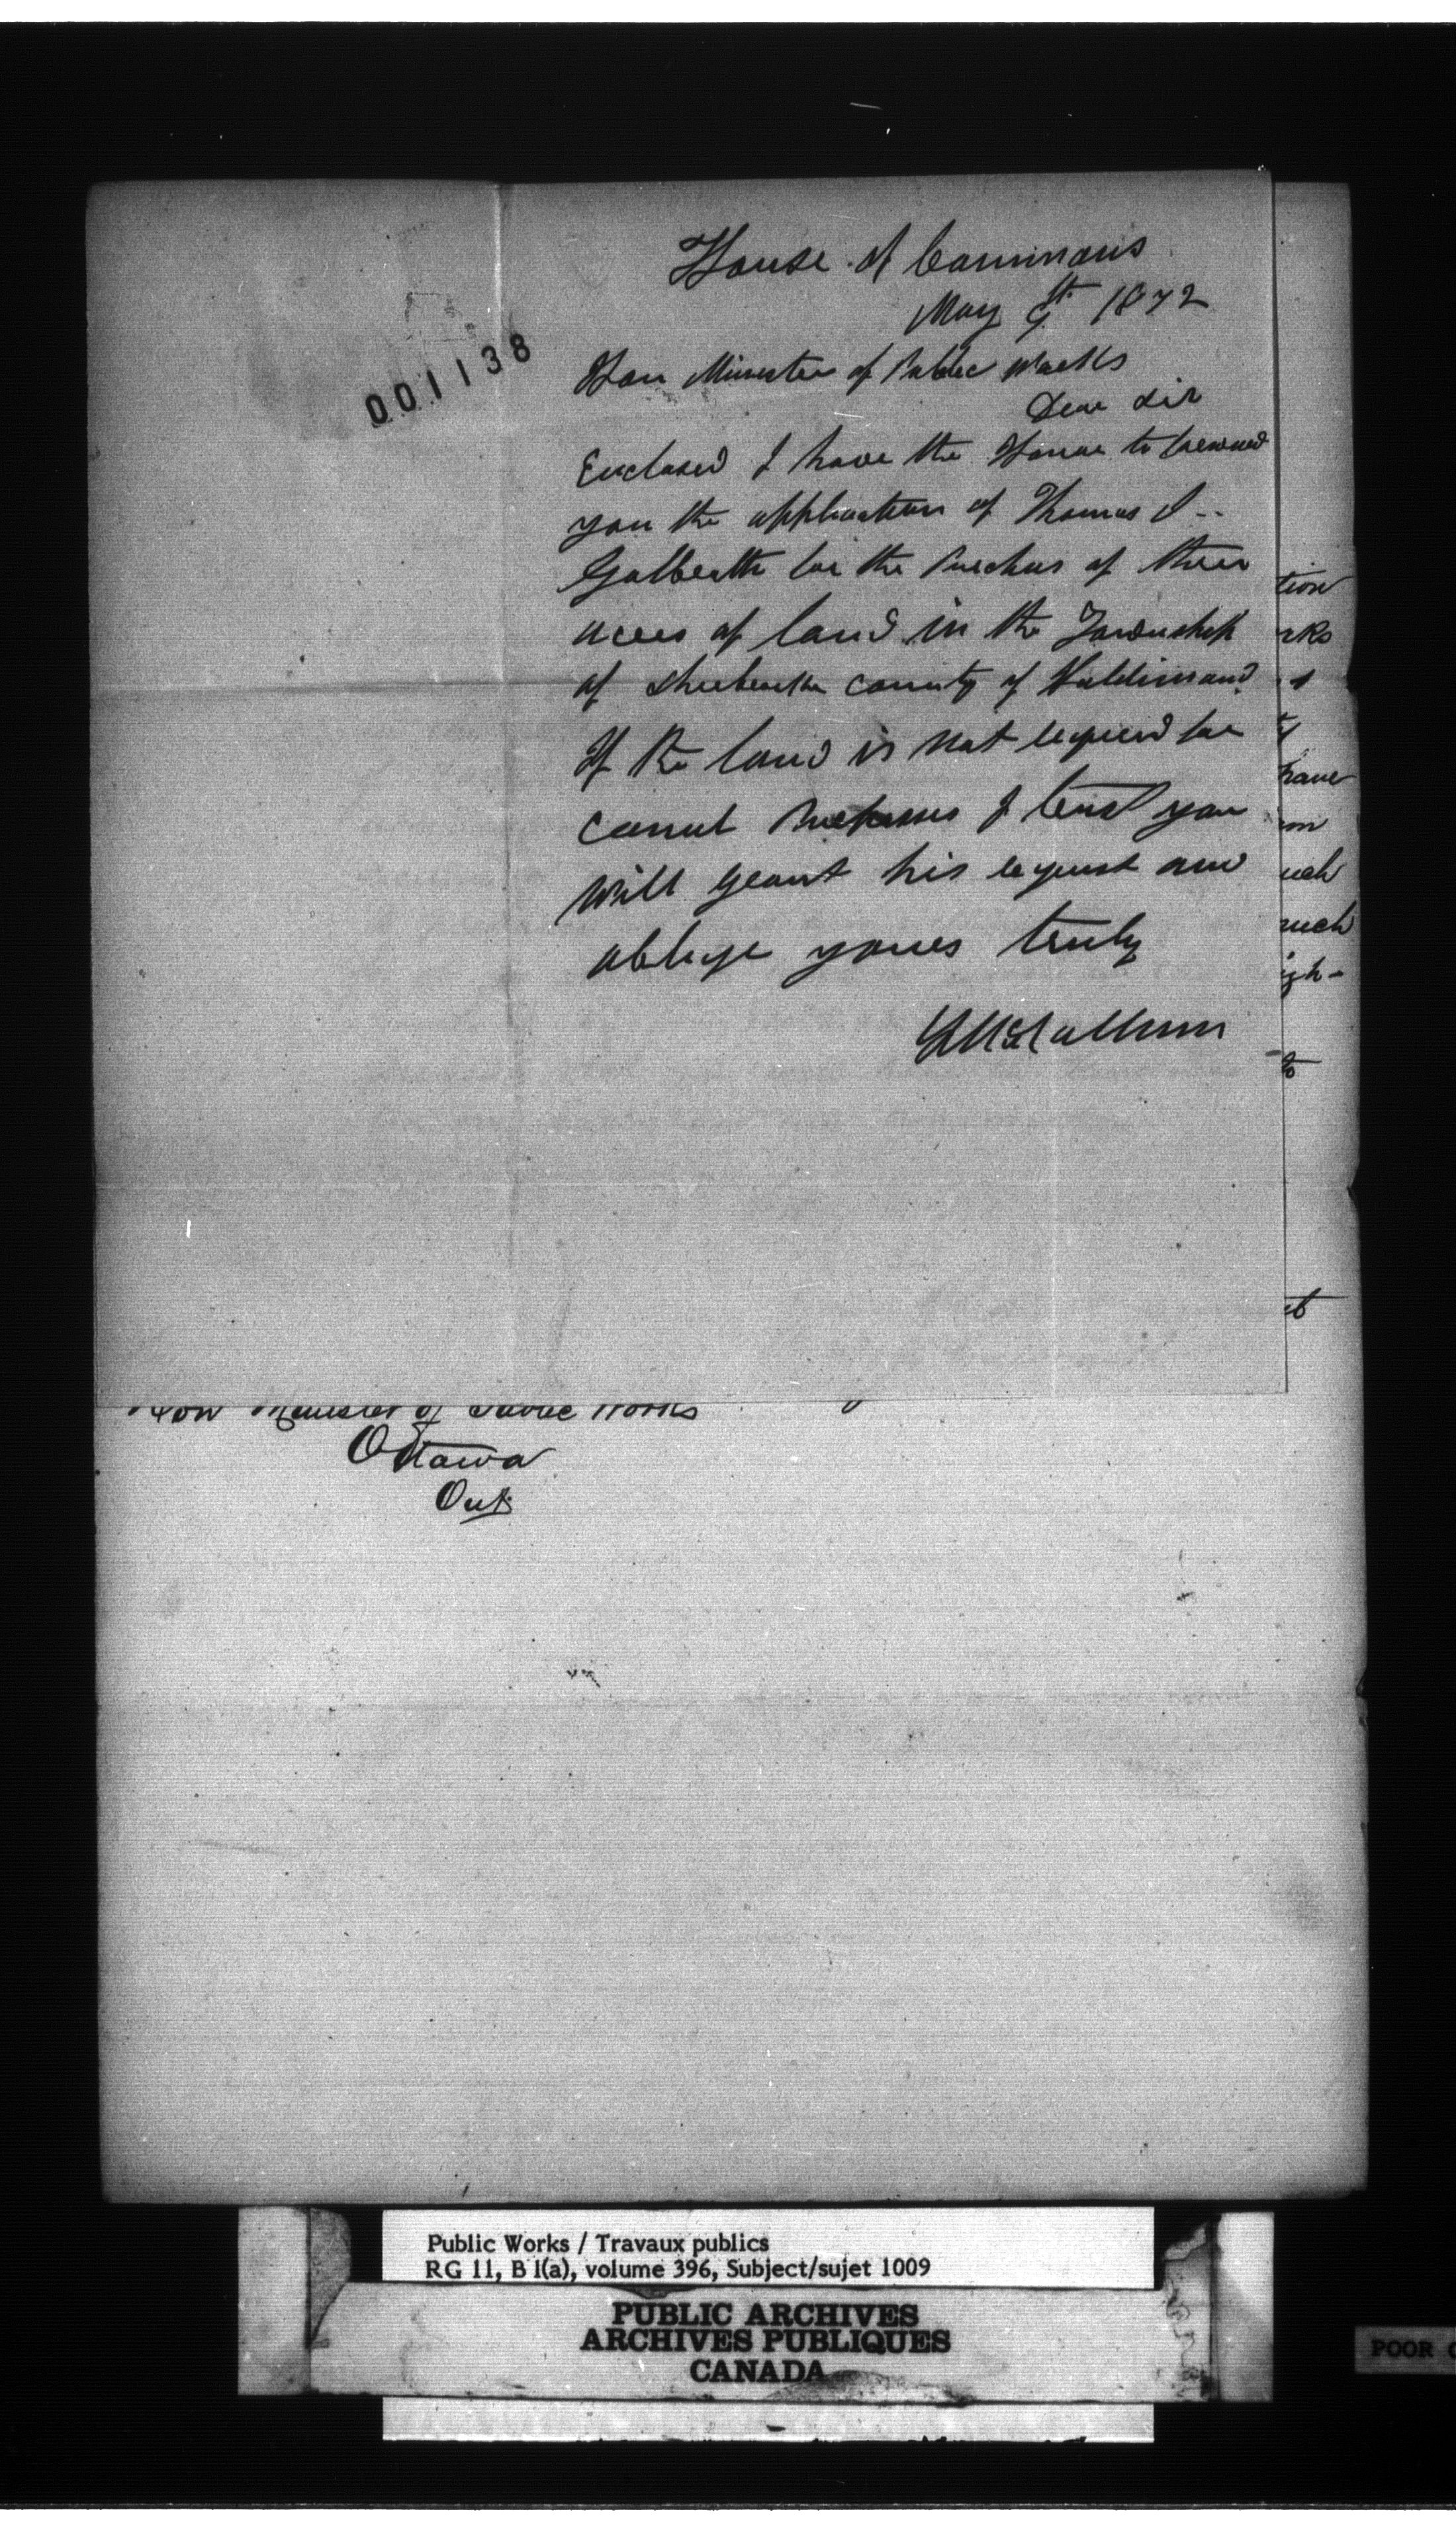 House of Commons
May 9th 1872
001138
Hon Minister of Public Works
Dear Sir
Enclosed I have the Honor to forward
you the application of Thomas
Galbraith for the Purchas of three
acres of land in the Township
of Sherbrooke County of Haldimand
If the land is not required for
canal Purposes I trust you
will grant his request and
oblige yours truly
L McCallum
tion
rks
have
uch
much
igh-
to
Hon Minister of Public Works
Ottawa
Ont
Public Works / Travaux publics
RG 11, B 1(a), volume 396, Subject/sujet 1009
PUBLIC ARCHIVES
ARCHIVES PUBLIQUES
CANADA
POOR